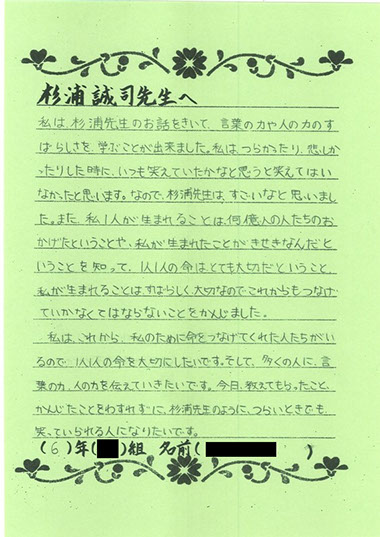 杉浦誠司先生へ
私は、杉浦先生のお話をきいて、言葉の力や人の力のす
ばらしさを、学ぶことが出来ました。私は、つらかったり、悲しか
ったりした時に、いつも笑えていたかなと思うと笑えてはい
なかったと思います。なので、杉浦先生は、すごいなと思いまし
た。また、私1人が生まれることは、何億人の人たちのお
かげだということや、私が生まれたことがきせきなんだと
いうことを知って、1人1人の命はとても大切だということ、
私が生まれることはすばらしく、大切なのでこれからもつなげ
ていかなくてはならないことをかんじました。
私は、これから、私のために命をつなげてくれた人たちがい
るので、1人1人の命を大切にしたいです。そして、多くの人に、言
葉の力、人の力を伝えていきたいです。今日、教えてもらったこと、
かんじたことをわすれずに、杉浦先生のように、つらいときでも、
笑っていられる人になりたいです。
(6)年( )組 名前( )